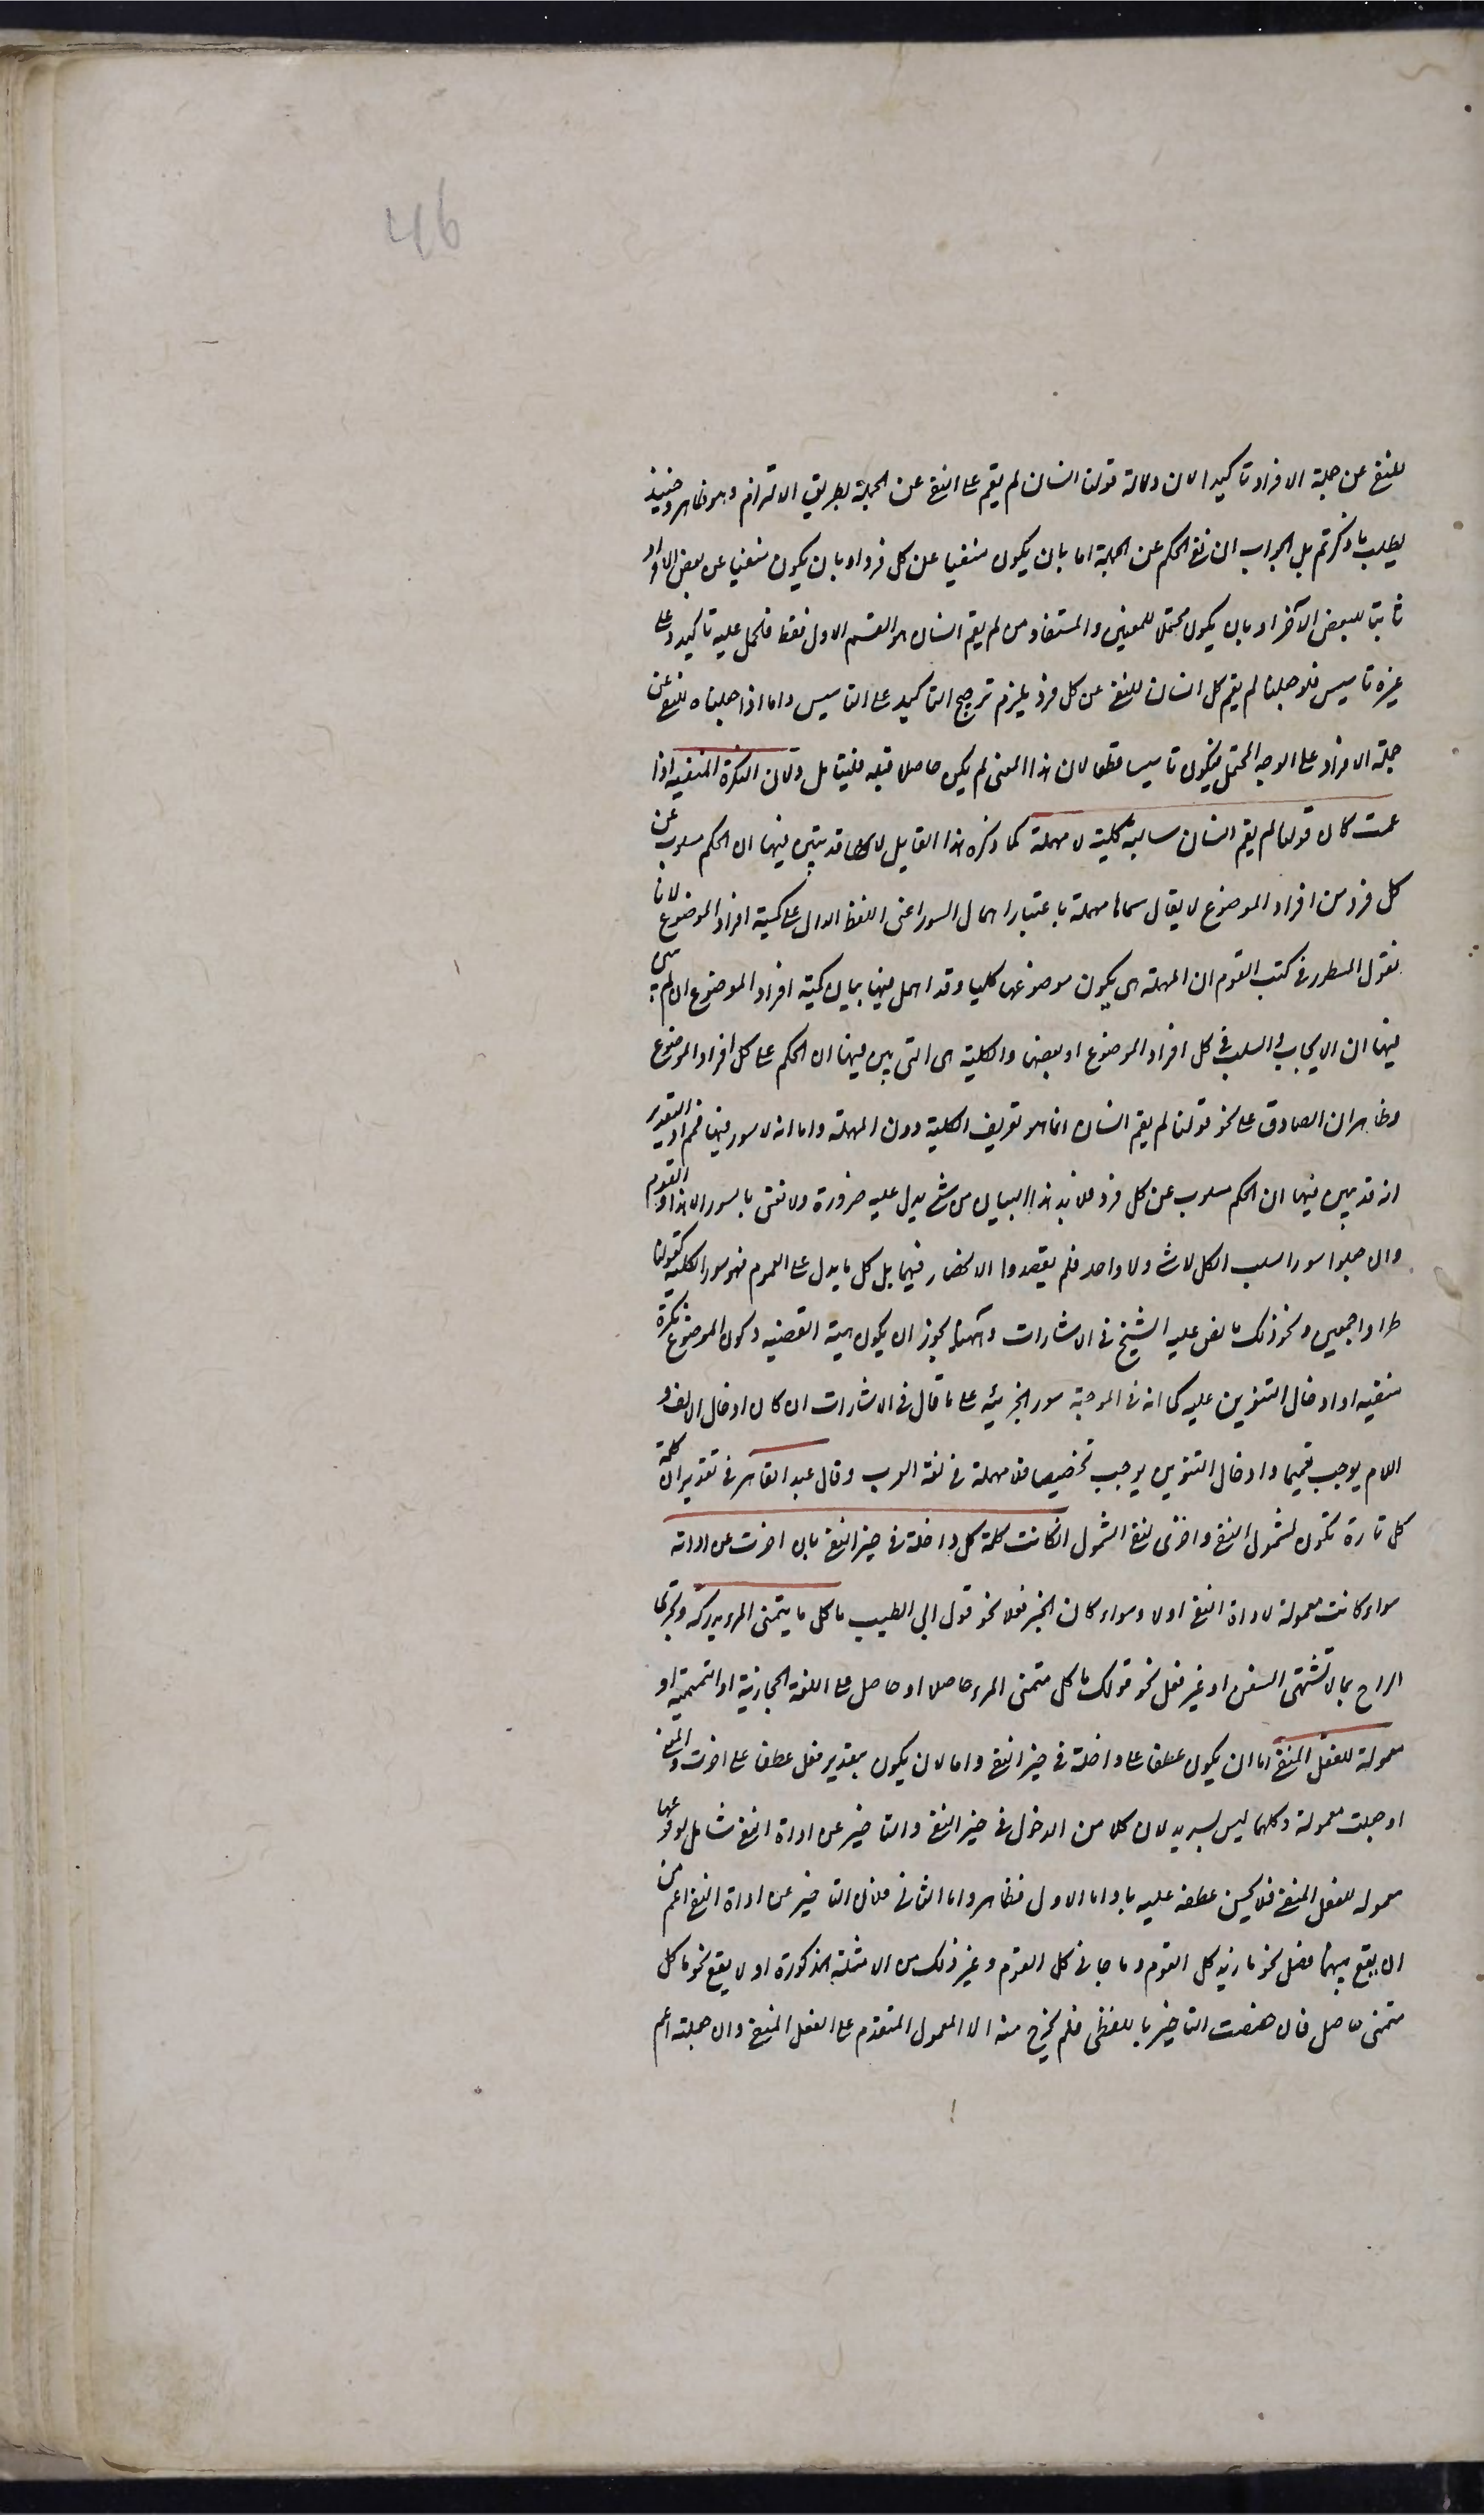 46
للنفى عن جملة الافراد تاكيدا لان دلالة قولنا انسان لم يقم على النفى عن الجملة بطريق الالتزام وهو ظاهر وحينئذ
يبطل ما ذكرتم بل الجواب ان نفى الحكم عن الجملة اما بان يكون منفيا عن كل فرد او بان يكون منفيا عن بعض الافراد
ثابتا للبعض الآخر او بان يكون محتملا للمعنيين والمستفاد من لم يقم انسان هو القسم الاول فقط فالحمل عليه تاكيد وعلى
غيره تاسيس فلو جعلنا لم يقم كل انسان للنفى عن كل فرد يلزم ترجيح التاكيد على التاسيس واما اذا جعلناه للنفى عن
جملة الافراد على الوجه المحتمل فيكون تاسيسا قطعا لان هذا المعنى لم يكن حاصلا قبله فليتامل ولان النكرة المنفية اذا
عمت كان قولنا لم يقم انسان سالبة كلية لا مهملة كما ذكره هذا القايل لانه قد بين فيها ان الحكم مسلوب عن
كل فرد من افراد الموضوع لا يقال سماها مهملة باعتبار اهمال السور اعنى اللفظ الدال على كمية افراد الموضوع لانا
نقول المسطور فى كتب القوم ان المهملة هى يكون موضوعها كليا وقد اهمل فيها بيان كمية افراد الموضوع اى لم يبين
فيها ان الايجاب او السلب فى كل افراد الموضوع او بعضها والكلية هى التى بين فيها ان الحكم على كل افراد الموضوع
وظاهر ان الصادق على نحو قولنا لم يقم انسان انما هو تعريف الكلية دون المهملة واما انه لا سور فيها فمم اذ التقدير
انه قد بين فيها ان الحكم مسلوب عن كل فرد فلا بد لهذا البيان من شئ يدل عليه ضرورة ولا نعنى بالسور الا هذا والقوم
وان جعلوا سور السلب الكل لا شئ ولا واحد فلم يقصدوا الانحصار فيهما بل كل ما يدل على العموم فهو سور الكلية كقولنا
طرا واجمعين ونحو ذلك ما نص عليه الشيخ فى الاشارات وههنا يجوز ان يكون هيئة القضية وكون الموضوع نكرة
منفية او ادخال التنوين عليه كما انه فى الموجبة سور الجزئية على ما قال فى الاشارات ان كان ادخال الالف و
اللام يوجب تعميما وادخال التنوين يوجب تخصيصا فلا مهملة فى لغة العرب وقال عبد القاهر فى تقدير ان كلمة
كل تارة تكون لشمول النفى واخرى لنفى الشمول ان كانت كلمة كل داخلة فى حيز النفى بان اخرت عن اداته
سواء كانت معمولة لاداة النفى او لا وسواء كان الخبر فعلا نحو قول ابى الطيب ما كل ما يتمنى المرء يدركه وتجرى
الرياح بما لا تشتهى السفن او غير فعل نحو قولك ما كل متمنى المرء حاصلا او حاصل على اللغة الحجازية او التميمية او
معمولة للفعل المنفى اما ان يكون عطفا على داخلة فى حيز النفى واما لان يكون بتقدير فعل عطف على اخرت والمعنى
او جعلت معمولة وكلاهما ليس بسديد لان كلا من الدخول فى حيز النفى والتاخير عن اداة النفى شامل لوقوعها
معموله للفعل المنفى فلا يحسن عطفه عليه باو اما الاول فظاهر واما الثانى فلان التاخير عن اداة النفى اعم من
ان يقع بينهما فصل نحو ما زيد كل القوم وما جانى كل القوم وغير ذلك من الامثلة المذكورة او لا يقع نحو ما كل
متمنى حاصل فان خصصت التاخير باللفظى فلم يخرج منه الا المعمول المتقدم على الفعل المنفى وان جعلته اعم